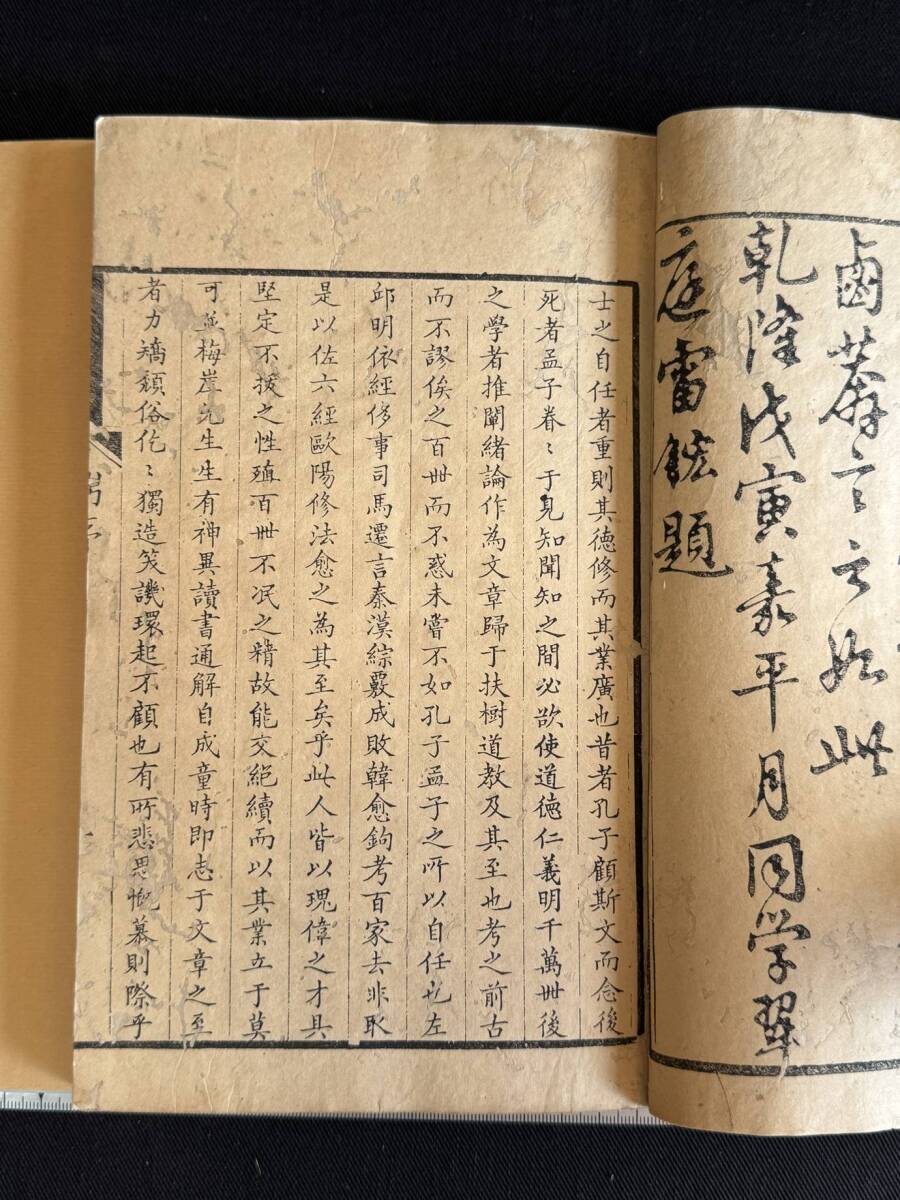 鹵莽言之如此
乾隆戊寅嘉平月同學翠
庭雷鋐題
士之自任者重則其德修而其業廣也昔者孔子顧斯文而念後
死者孟子眷〻于見知聞知之間必欲使道德仁義明千萬世後
之學者推闡緒論作為文章歸于扶樹道教及其至也考之前古
而不謬俟之百世而不惑未嘗不如孔子孟子之所以自任也左
邱明依經侈事司馬遷言秦漢綜覈成敗韓愈鉤考百家去非取
是以佐六經歐陽修法愈之為其至矣乎此人皆以瑰偉之才具
堅定不拔之性殖百世不泯之精故能交絕續而以其業立于莫
可並梅崖先生生有神異讀書通解自成童時即志于文章之至
者力矯頹俗仡〻獨造笑譏環起不顧也有所悲思慨慕則際乎